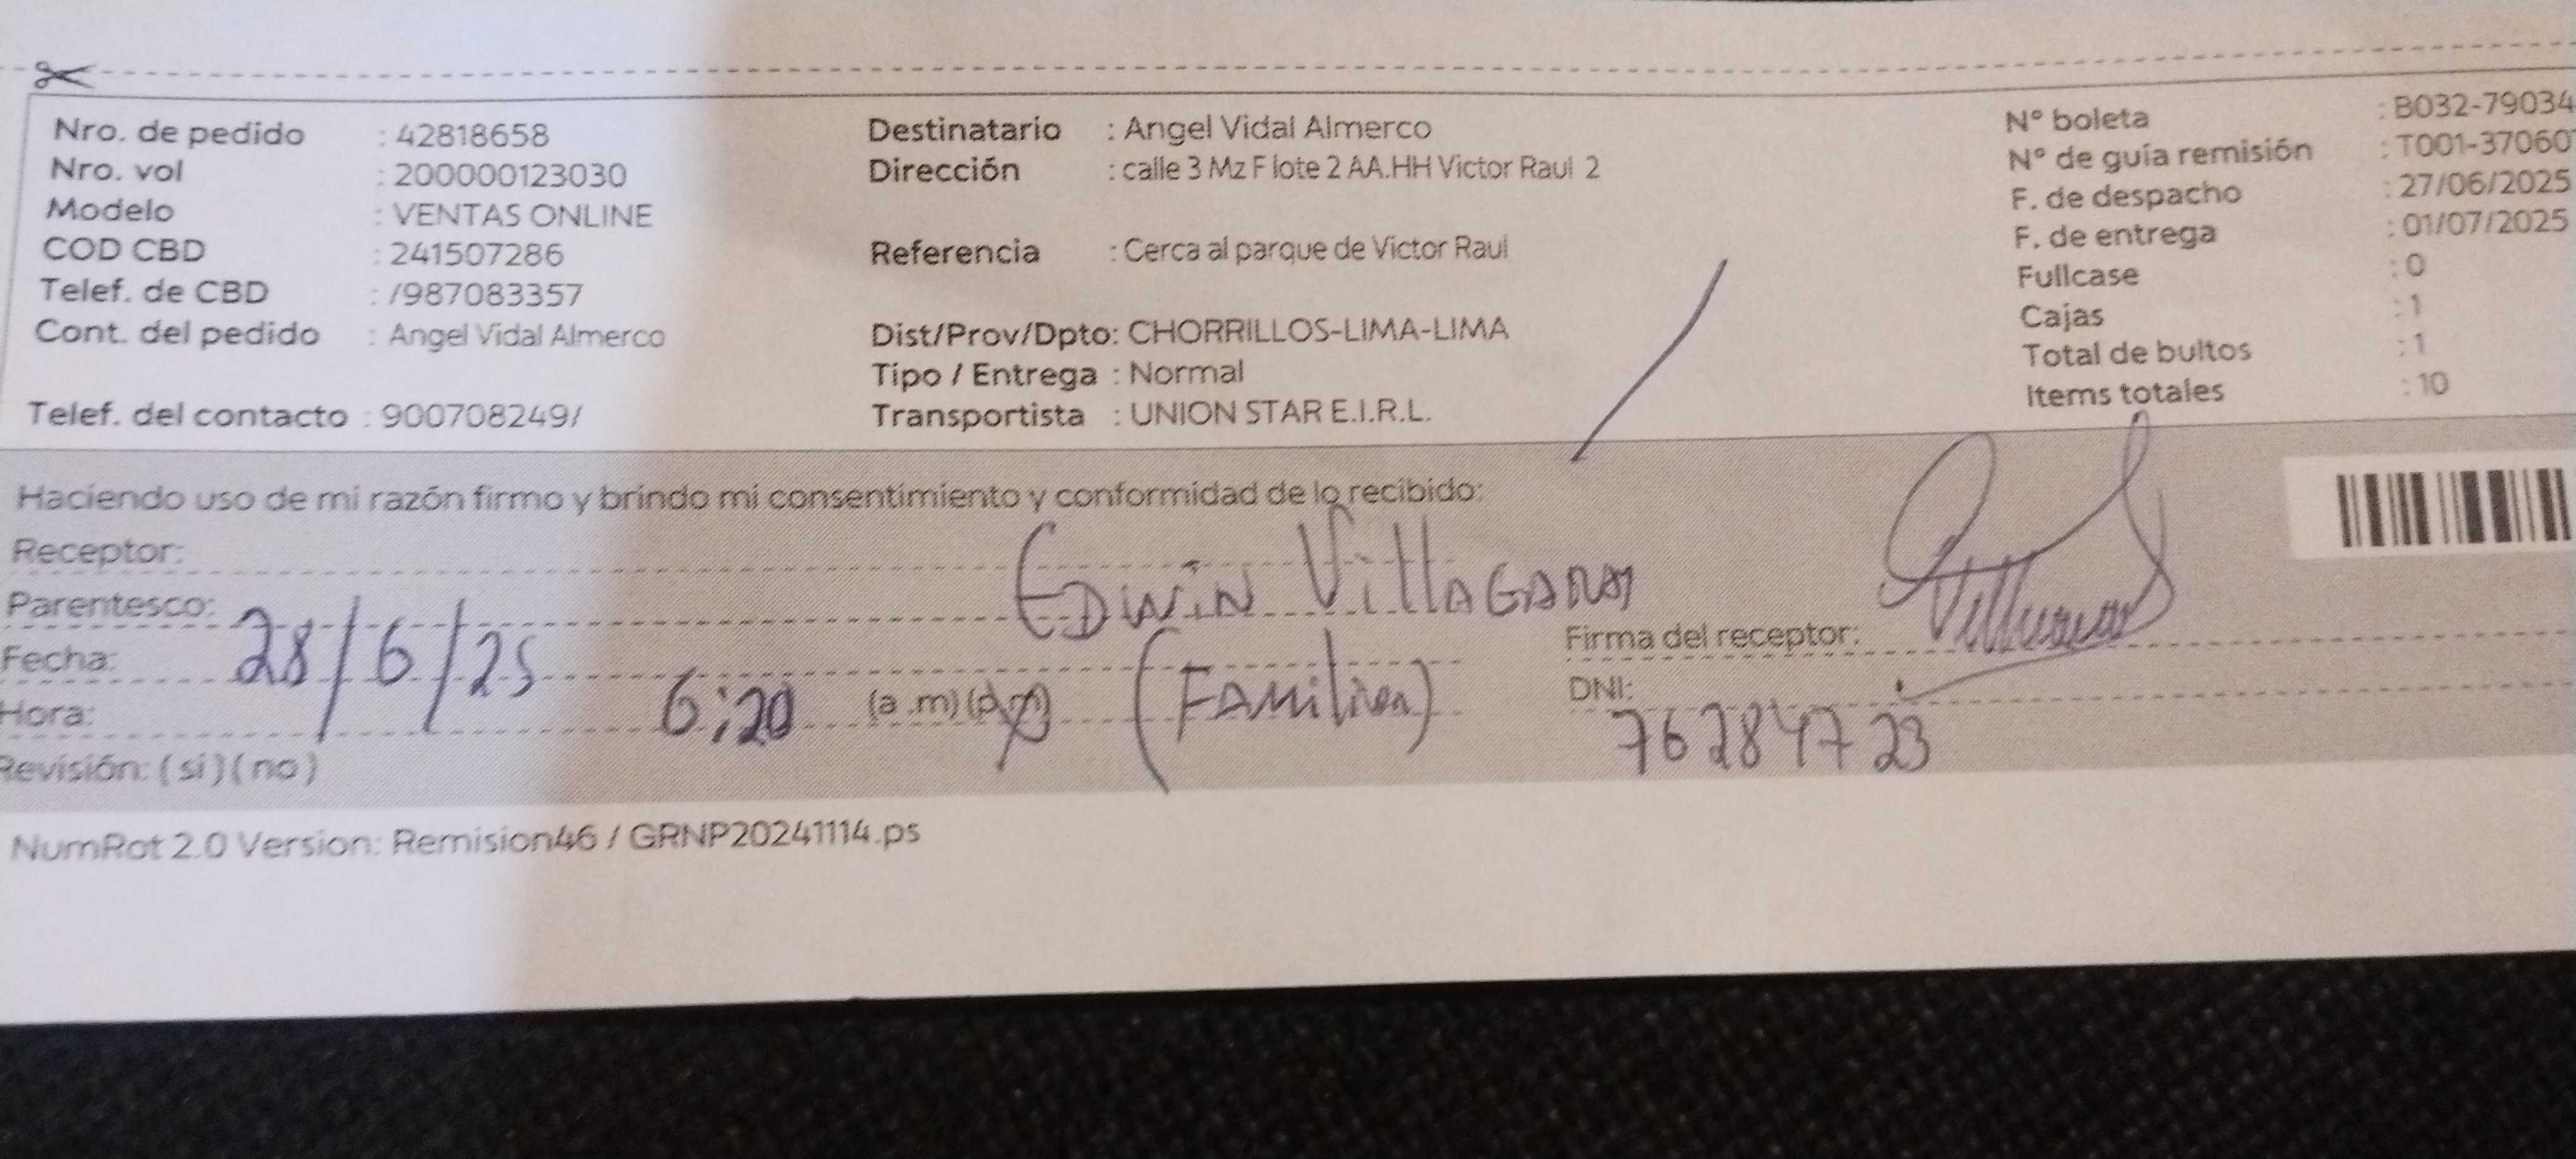 Nro. de pedido : 42818658
Nro. vol : 200000123030
Modelo : VENTAS ONLINE
COD CBD : 241507286
Telef. de CBD : /987083357
Cont. del pedido : Angel Vidal Almerco
Telef. del contacto : 900708249/
Destinatario : Angel Vidal Almerco
Dirección : calle 3 Mz F lote 2 AA.HH Victor Raul 2
Referencia : Cerca al parque de Victor Raul
Dist/Prov/Dpto: CHORRILLOS-LIMA-LIMA
Tipo / Entrega : Normal
Transportista : UNION STAR E.I.R.L.
N° boleta : B032-79034
N° de guía remisión : T001-37060
F. de despacho : 27/06/2025
F. de entrega : 01/07/2025
Fullcase : 0
Cajas : 1
Total de bultos : 1
Items totales : 10
Haciendo uso de mi razón firmo y brindo mi consentimiento y conformidad de lo recibido:
Receptor:
Edwin Villagaray
Parentesco:
Fecha: 28/6/25
Hora: 6:20 (a .m) (p.m) (Familiar)
Revisión: ( si ) ( no )
Firma del receptor:
DNI:
76284723
NumRot 2.0 Version: Remision46 / GRNP20241114.ps